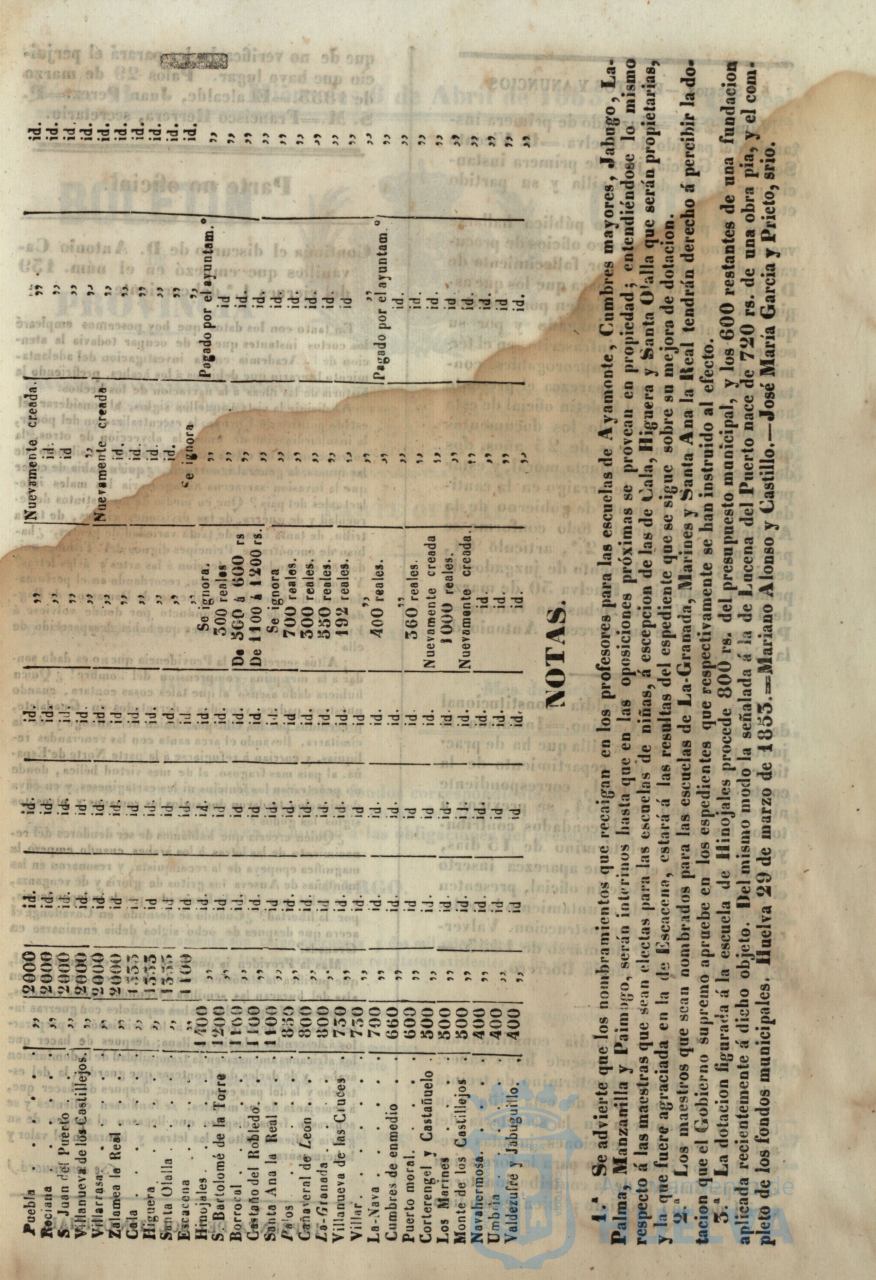 Puebla . . . . . ,, 2000 id. id. id. ,, Nuevamente creada. ,, id.
Rociana . . . . . ,, 2000 id. id. id. ,, id. ,, id.
S. Juan del Puerto . . ,, 2000 id. id. id. ,, id ,, id.
Villanueva de los Castillejos. ,, 2000 id. id. id. ,, ,, ,, id.
Villarrasa . . . . ,, 2000 id. id. id. ,, Nuevamente creada ,, id.
Zalamea la Real . . . ,, 2000 id. id. id. ,, id. ,, id.
Cala . . . . . ,, 1333 id. id. id. ,, id. ,, id.
Higuera . . . . . ,, 1333 id. id. id. ,, id. ,, id.
Santa Olalla . . . . ,, 1333 id. id. id. ,, id. ,, id.
Escacena . . . . . ,, 1100 id. id. id. ,, Se ignora ,, id.
Hinojales . . . . . 1400 ,, id. id. id. Se ignora. ,, Pagado por el ayuntam.º ,,
S. Bartolomé de la Torre . 1200 ,, id. id. id. 300 reales ,, id ,,
Borrocal . . . . . 1100 ,, id. id. id. De 360 á 600 rs ,, id. ,,
Castaño del Robledo. . . 1100 ,, id. id. id. De 1100 á 1200 rs. ,, id. ,,
Santa Ana la Real . . . 1100 ,, id. id. id. Se ignora ,, id. ,,
Palos . . . . . 850 ,, id. id. id. 700 reales. ,, id. ,,
Cañaveral de Leon . . . 800 ,, id. id. id. 300 reales. ,, id. ,,
La-Granada . . . . 800 ,, id. id. id. 550 reales. ,, id. ,,
Villanueva de las Cruces . 750 ,, id. id. id. 192 reales. ,, id ,,
Villar . . . . . 750 ,, id. id. id. ,, ,, ,, ,,
La-Nava . . . . . 700 ,, id. id. id. 400 reales. ,, Pagado por el ayuntam.º ,,
Cumbres de enmedio . . 660 ,, id. id. id. ,, ,, id. ,,
Puerto moral. . . . 600 ,, id. id. id. 360 reales. ,, id. ,,
Corterengel y Castañuelo . 500 ,, id. id id. Nuevamente creada ,, id. ,,
Los Marines . . . . 500 ,, id. id. id. 1000 reales. ,, id. ,,
Monte de los Castillejos . 500 ,, id. id. id. Nuevamente creada. ,, id. ,,
Navahermosa. . . . 400 ,, id. id. id. id. ,, id. ,,
Umbría . . . . . 400 ,, id. id id. id. ,, id. ,,
Valdezufre y Jabuguillo. . 400 ,, id id id. id. ,, id. ,,
NOTAS.
1.ª Se advierte que los nombramientos que recaigan en los profesores para las escuelas de Ayamonte, Cumbres mayores, Jabugo, La-
Palma, Manzanilla y Paimogo, serán interinos hasta que en las oposiciones próximas se provean en propiedad; entendiéndose lo mismo
respecto á las maestras que sean electas para las escuelas de niñas, á escepcion de las de Cala, Higuera y Santa Olalla que serán propietarias,
y la que fuere agraciada en la de Escacena, estará á las resultas del espediente que se sigue sobre su mejora de dotacion.
2.ª Los maestros que sean nombrados para las escuelas de La-Granada, Marines y Santa Ana la Real tendrán derecho á percibir la do-
tacion que el Gobierno supremo apruebe en los espedientes que respectivamente se han instruido al efecto.
3.ª La dotacion figurada á la escuela de Hinojales procede 800 rs. del presupuesto municipal, y los 600 restantes de una fundacion
aplicada recientemente á dicho objeto. Del mismo modo la señalada á la de Lucena del Puerto nace de 720 rs. de una obra pia, y el com-
pleto de los fondos municipales. Huelva 29 de marzo de 1853.=Mariano Alonso y Castillo.—José María García y Prieto, srio.
Ayuntamiento de
HUELVA